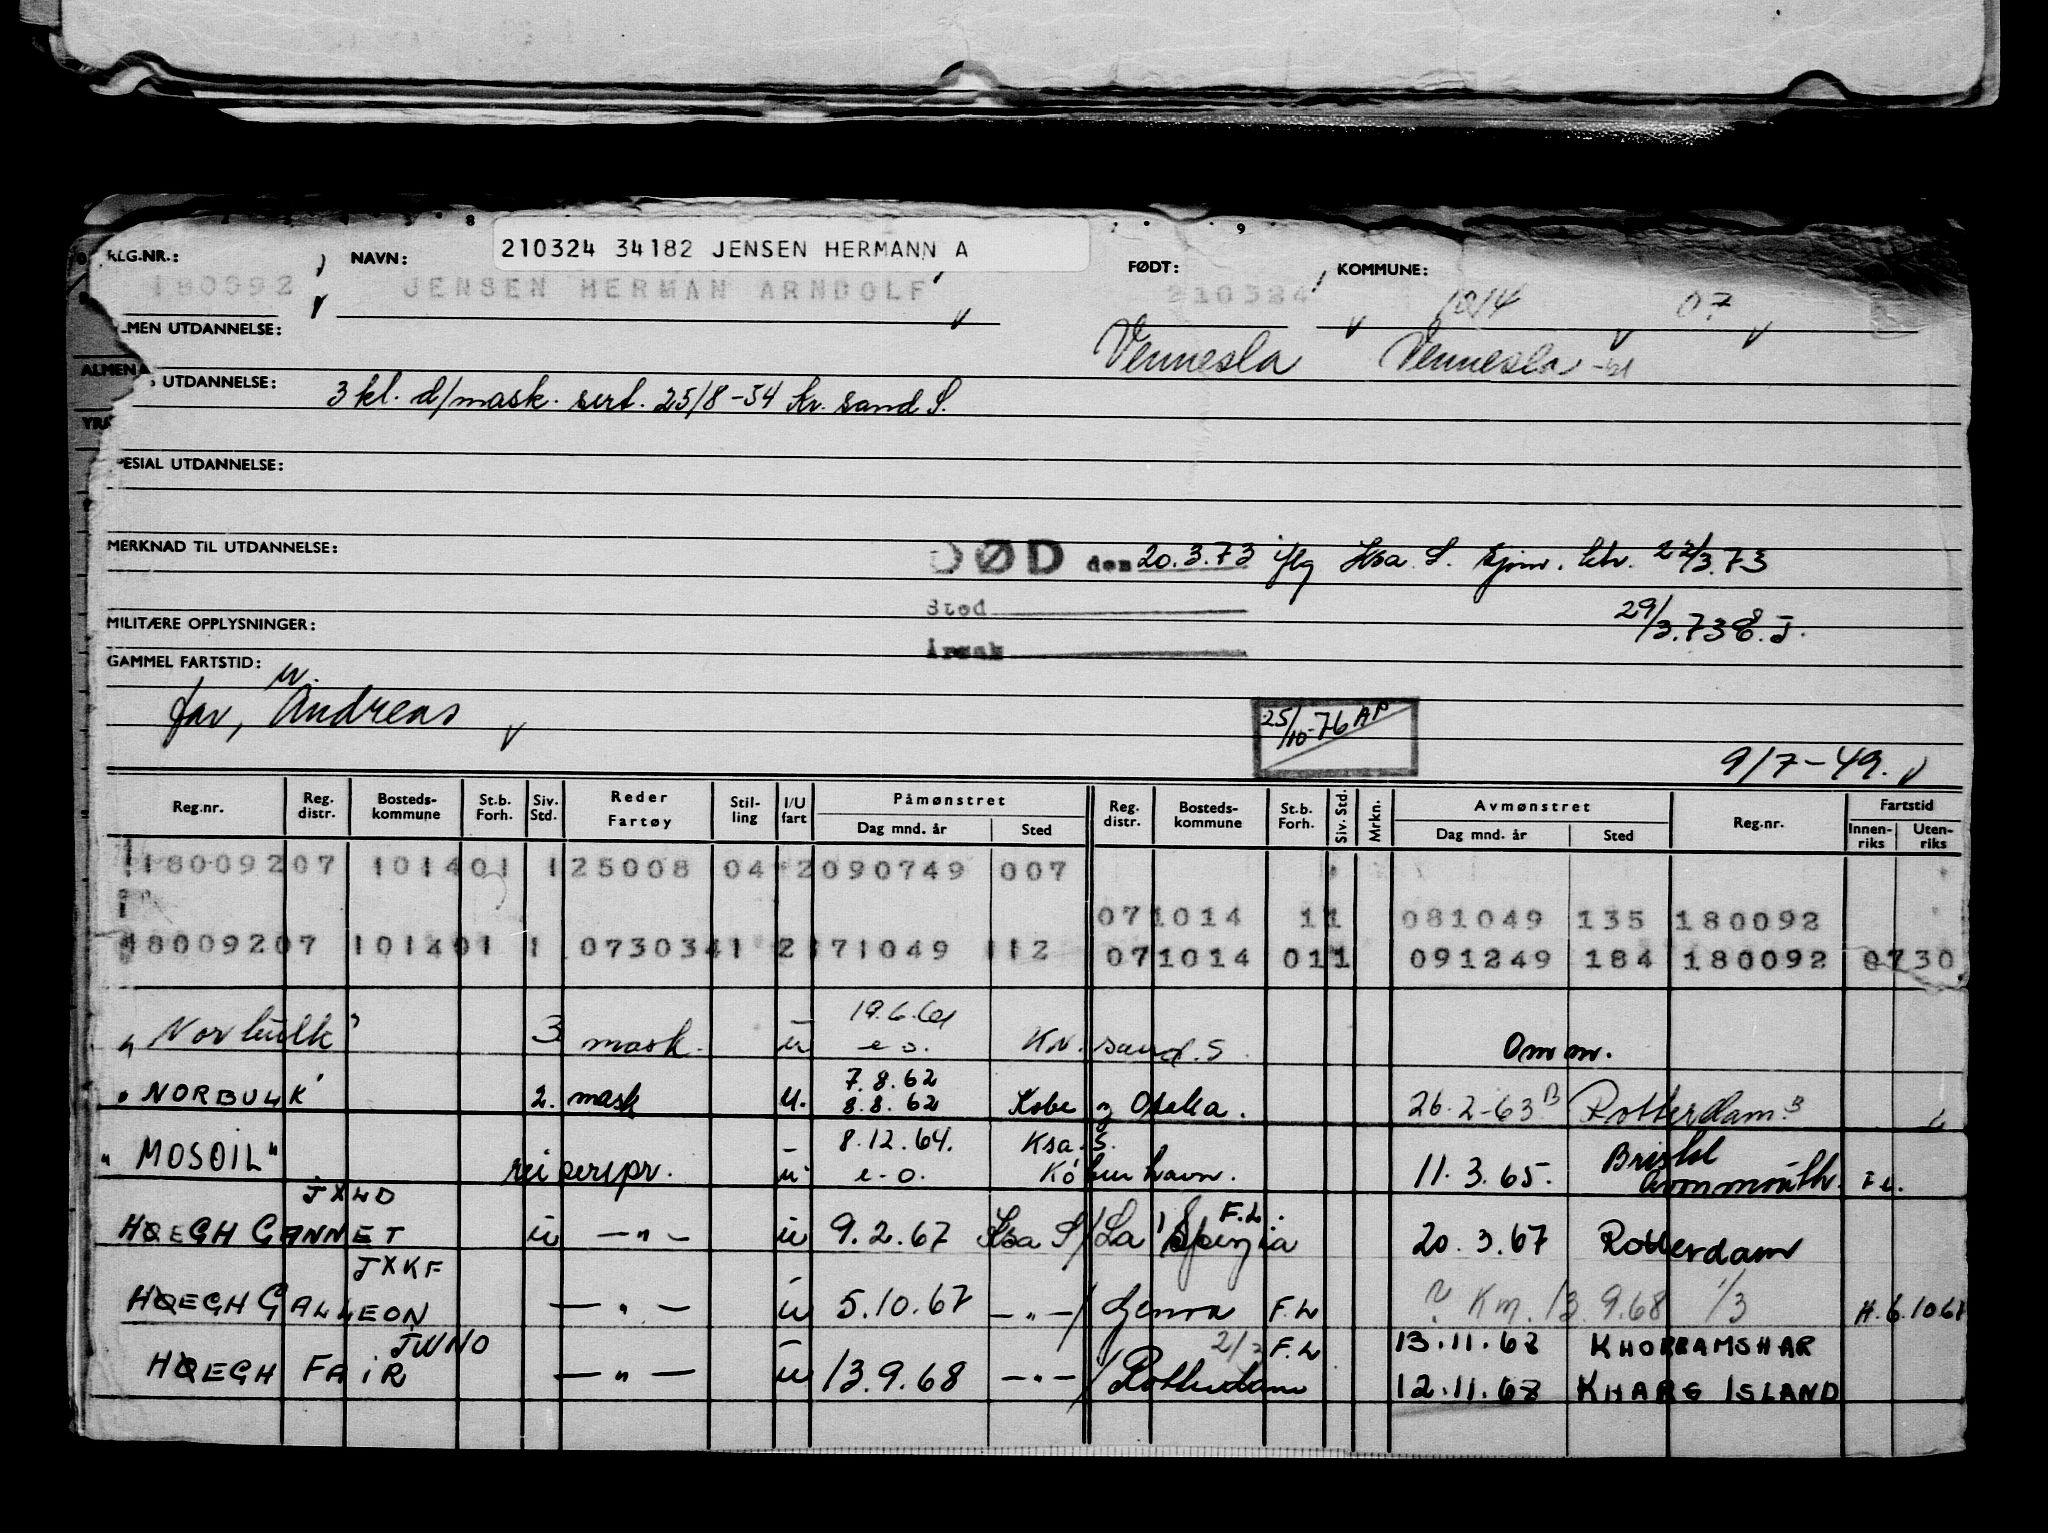 210324 34182 JENSEN HERMANN A
REG.NR.: NAVN: FØDT: KOMMUNE:
180092 JENSEN HERMAN ARNDOLF 210324 1014 07
LMEN UTDANNELSE: Vennesla Vennesla
ALMEN
UTDANNELSE: 3 kl. d/mask. sert. 25/8-54 Kr. sand S.
YR
ESIAL UTDANNELSE:
MERKNAD TIL UTDANNELSE: DØD den 20.3.73 iflg Ksa. S. sjøm. ktr. 22/3.73
Sted
MILITÆRE OPPLYSNINGER: 29/3.73
Årsak
GAMMEL FARTSTID:
far, Andreas
25/10-76 AP
9/7-49.
Reg.nr. Reg. distr. Bosteds-kommune St.b. Forh. Siv. Std. Reder Fartøy Stil-ling I/U fart Påmønstret Reg. distr. Bosteds-kommune St.b. Forh. Siv. Std. Mrkn. Avmønstret Reg.nr. Fartstid
Dag mnd. år Sted Dag mnd. år Sted Innen-riks Uten-riks
18009207 101401 125008 04 2 090749 007
071014 11 081049 135 180092
18009207 101401 1 0730341 2 171049 112 071014 011 091249 184 180092 0730
"Norbulk" 3 mask. u 19.6.61 e.o. Kr. sand. S. Omm.
"NORBULK" 2. mask u. 7.8.62 8.8.62 Kobe og Osaka. 26.2-63 Rotterdam
"MOSOIL" u 8.12.64. e.o. Ksa. S. København. 11.3.65. Bristol Avonmouth.
JXLD
HØEGH GANNET —"— u 9.2.67 Ksa S/La Spezia F.L. 20.3.67 Rotterdam
JXKF
HØEGH GALLEON —"— u 5.10.67 —"—/ Genova F.L ? Km. 13.9.68 1/3 H.6.10.67
JWNO
HØEGH FAIR —"— u 13.9.68 —"—/ Rotterdam F.L 13.11.68 KHORRAMSHAR
12.11.68 KHARG ISLAND